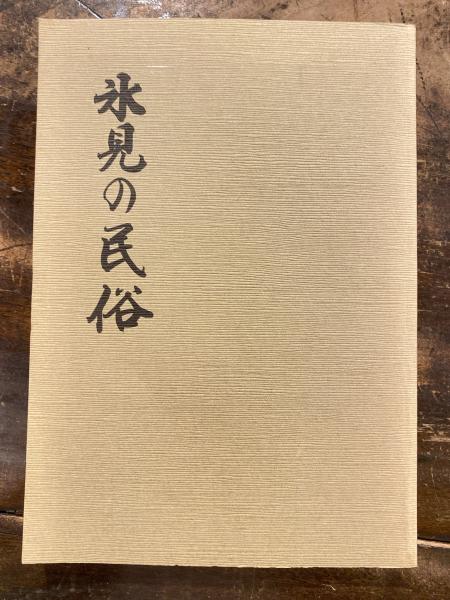 氷見の民俗